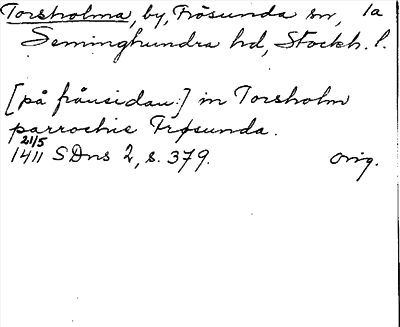 Torsholma, by, Frösunda sn, 1a
Seminghundra hd, Stockh. l.
[på frånsidan:] in Torsholm
parrochie Frøsunda.
21/5
1411 SDns 2, s. 379. Orig.